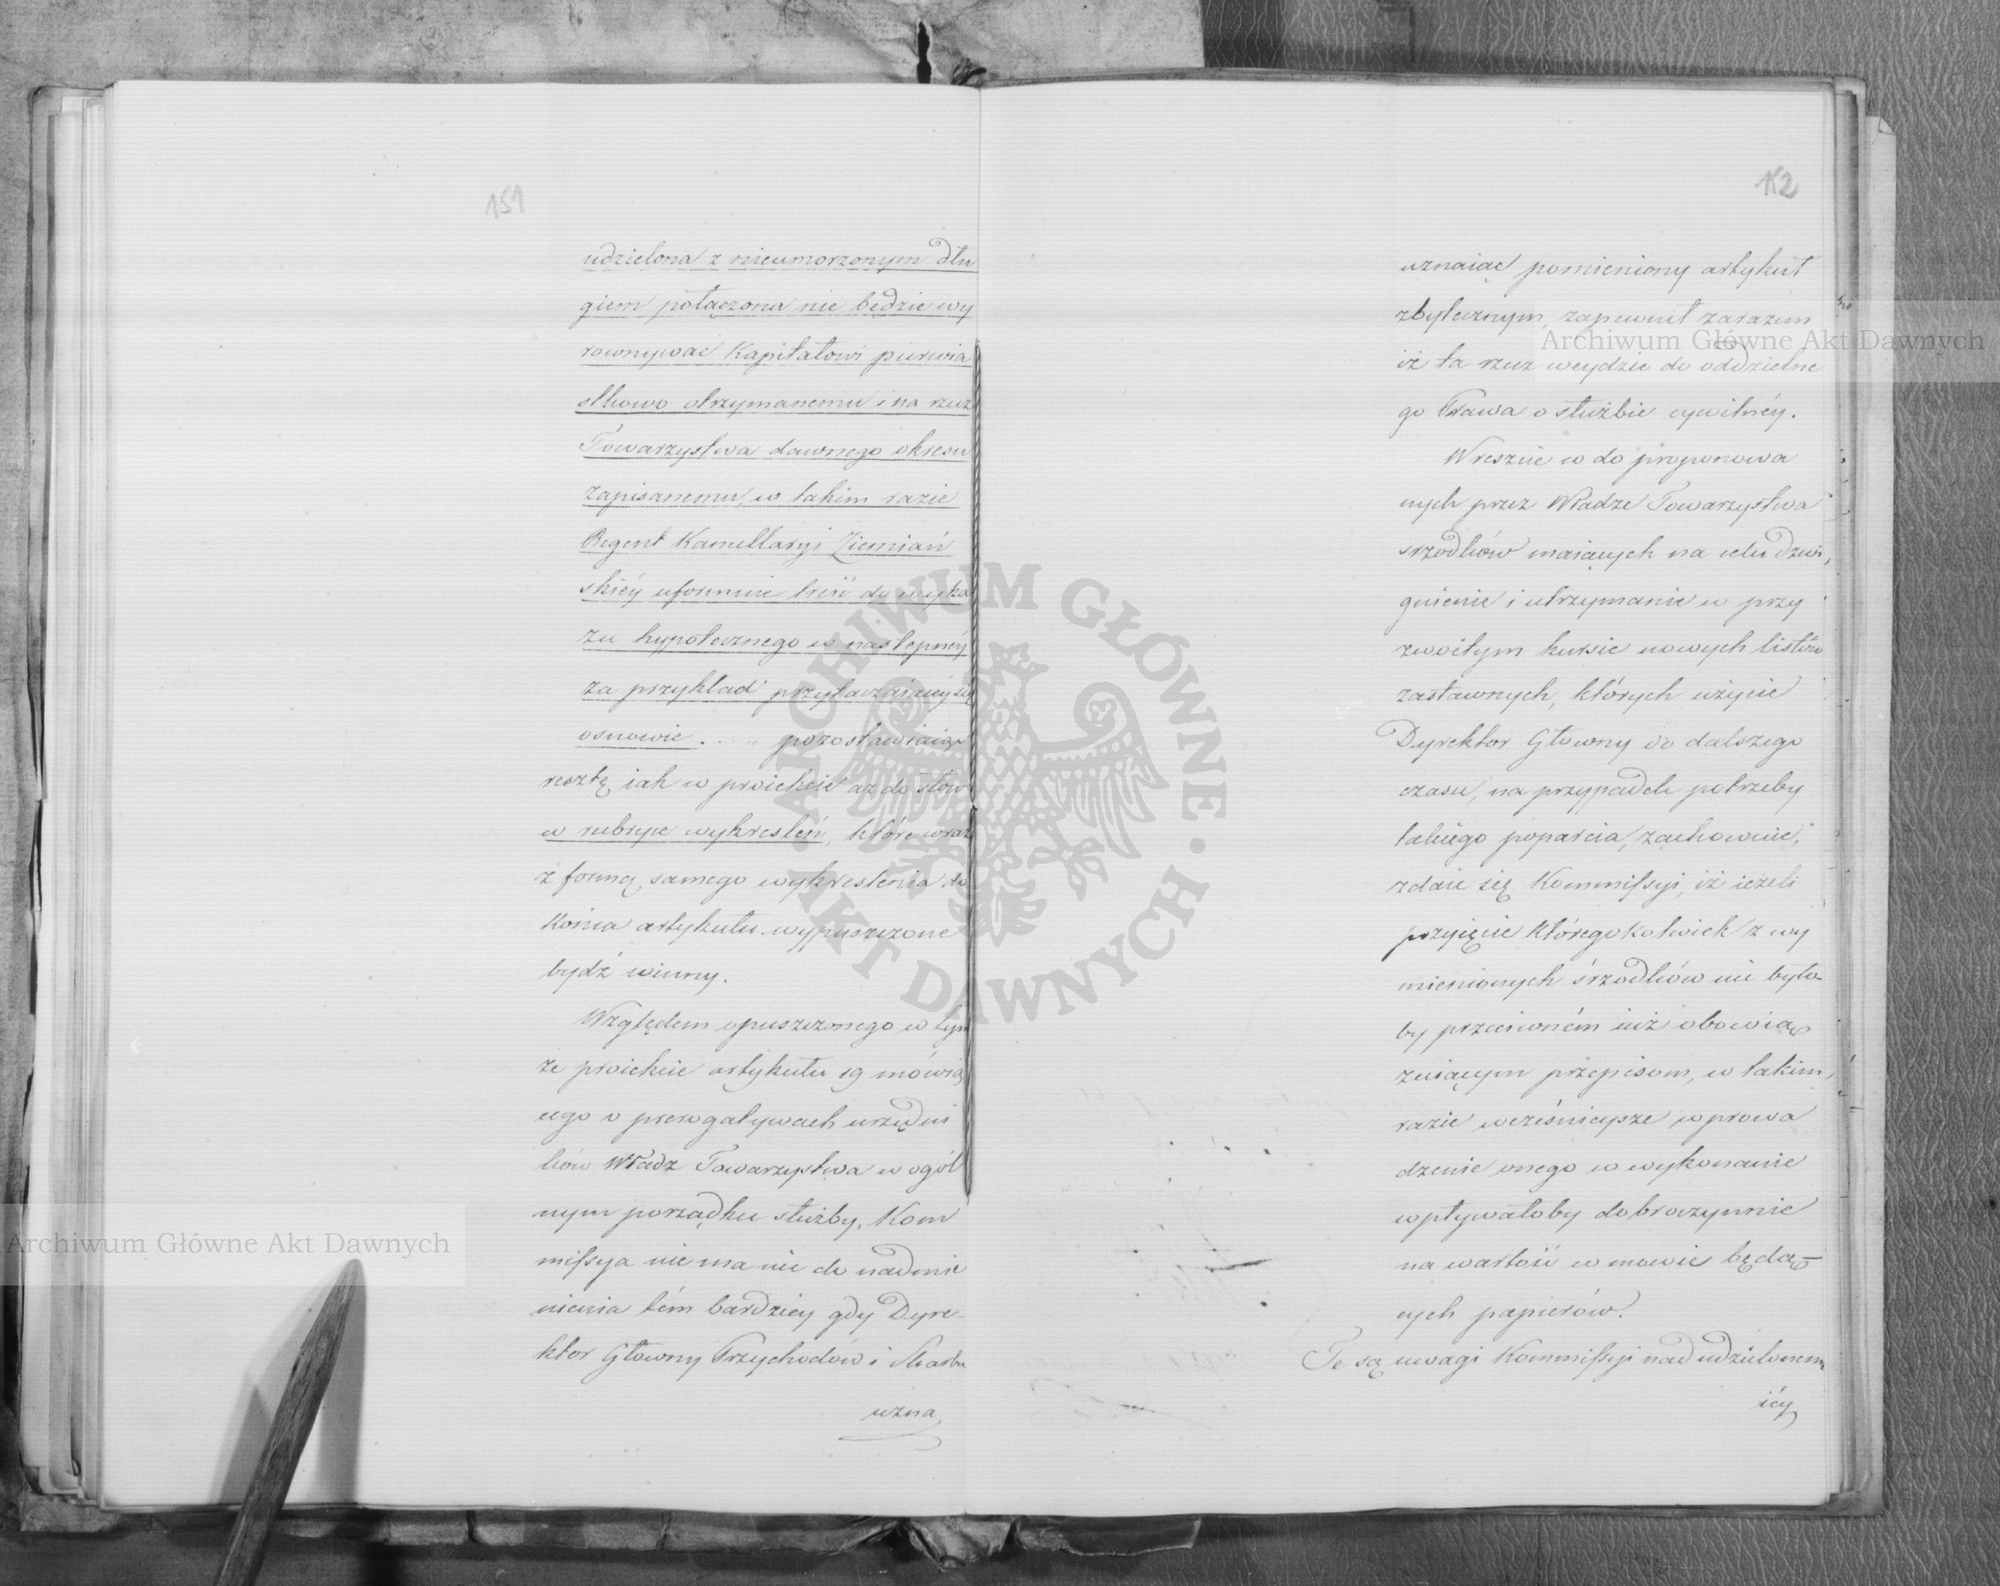 151
udzielona z nieumorzonym dłu
giem połączona nie będzie wy
rownywać Kapitałowi pierwia
stkowo otrzymanemu i na rzecz
Towarzystwa dawnego okresu
zapisanemu, w takim razie
Regent Kancellaryi Ziemiań
skiéy uformuie treść do wyka
zu hypotecznego w następnéy
za przykład przytaczaiącéy się
osnowie . . „ pozostawiaiąc
resztę iak w proiekcie aż do słów
w rubryce wykresleń, które wraz
z formą samego wykreslenia do
końca artykułu wypuszczone
bydź winny.
Względem opuszczonego w tym
że proiekcie artykułu 19 mówią
cego o prerogatywach urzędni
ków Władz Towarzystwa w ogól
nym porządku służby, Kom
missya nie ma nic do nadmie
nienia tém bardziey gdy Dyre-
ktor Głowny Przychodów i Skarbu
uzna
152
uznaiąc pomieniony artykuł
zbytecznym, zapewnił zarazem
iż ta rzecz weydzie do oddzielne
go Prawa o służbie cywilnéy.
Wreszcie co do proponowa
nych przez Władze Towarzystwa
srzodków maiących na celu dzwi
gnienie i utrzymanie w przy
zwoitym kursie nowych listów
zastawnych, których użycie
Dyrektor Głowny do dalszego
czasu, na przypadek potrzeby
takiego poparcia, zachowuie,
zdaie się Kommissyi, iż ieżeli
przyięcie któregokolwiek z wy
mienionych śrzodków nie było-
by przeciwném iuż obowią
zuiącym przepisom, w takim
razie wcześnieysze wprowa
dzenie onego w wykonanie
wpływałoby dobroczynnie
na wartość w mowie będą-
cych papierów.
Te są uwagi Kommissyi nad udzielonemi
iéy
Archiwum Główne Akt Dawnych
Archiwum Główne Akt Dawnych
ARCHIWUM GŁÓWNE · AKT DAWNYCH ·